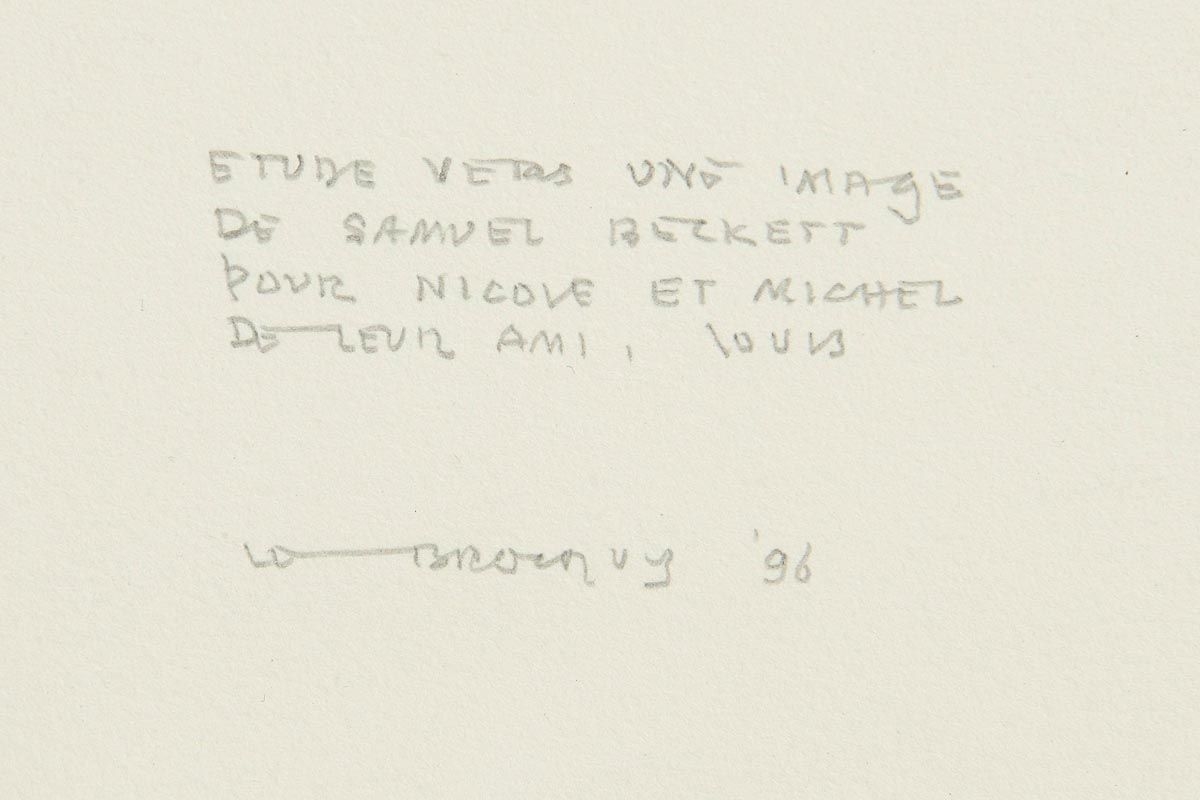 ETUDE VERS UNE IMAGE
DE SAMUEL BECKETT
POUR NICOLE ET MICHEL
DE LEUR AMI, LOUIS
LE BROCQUY '96